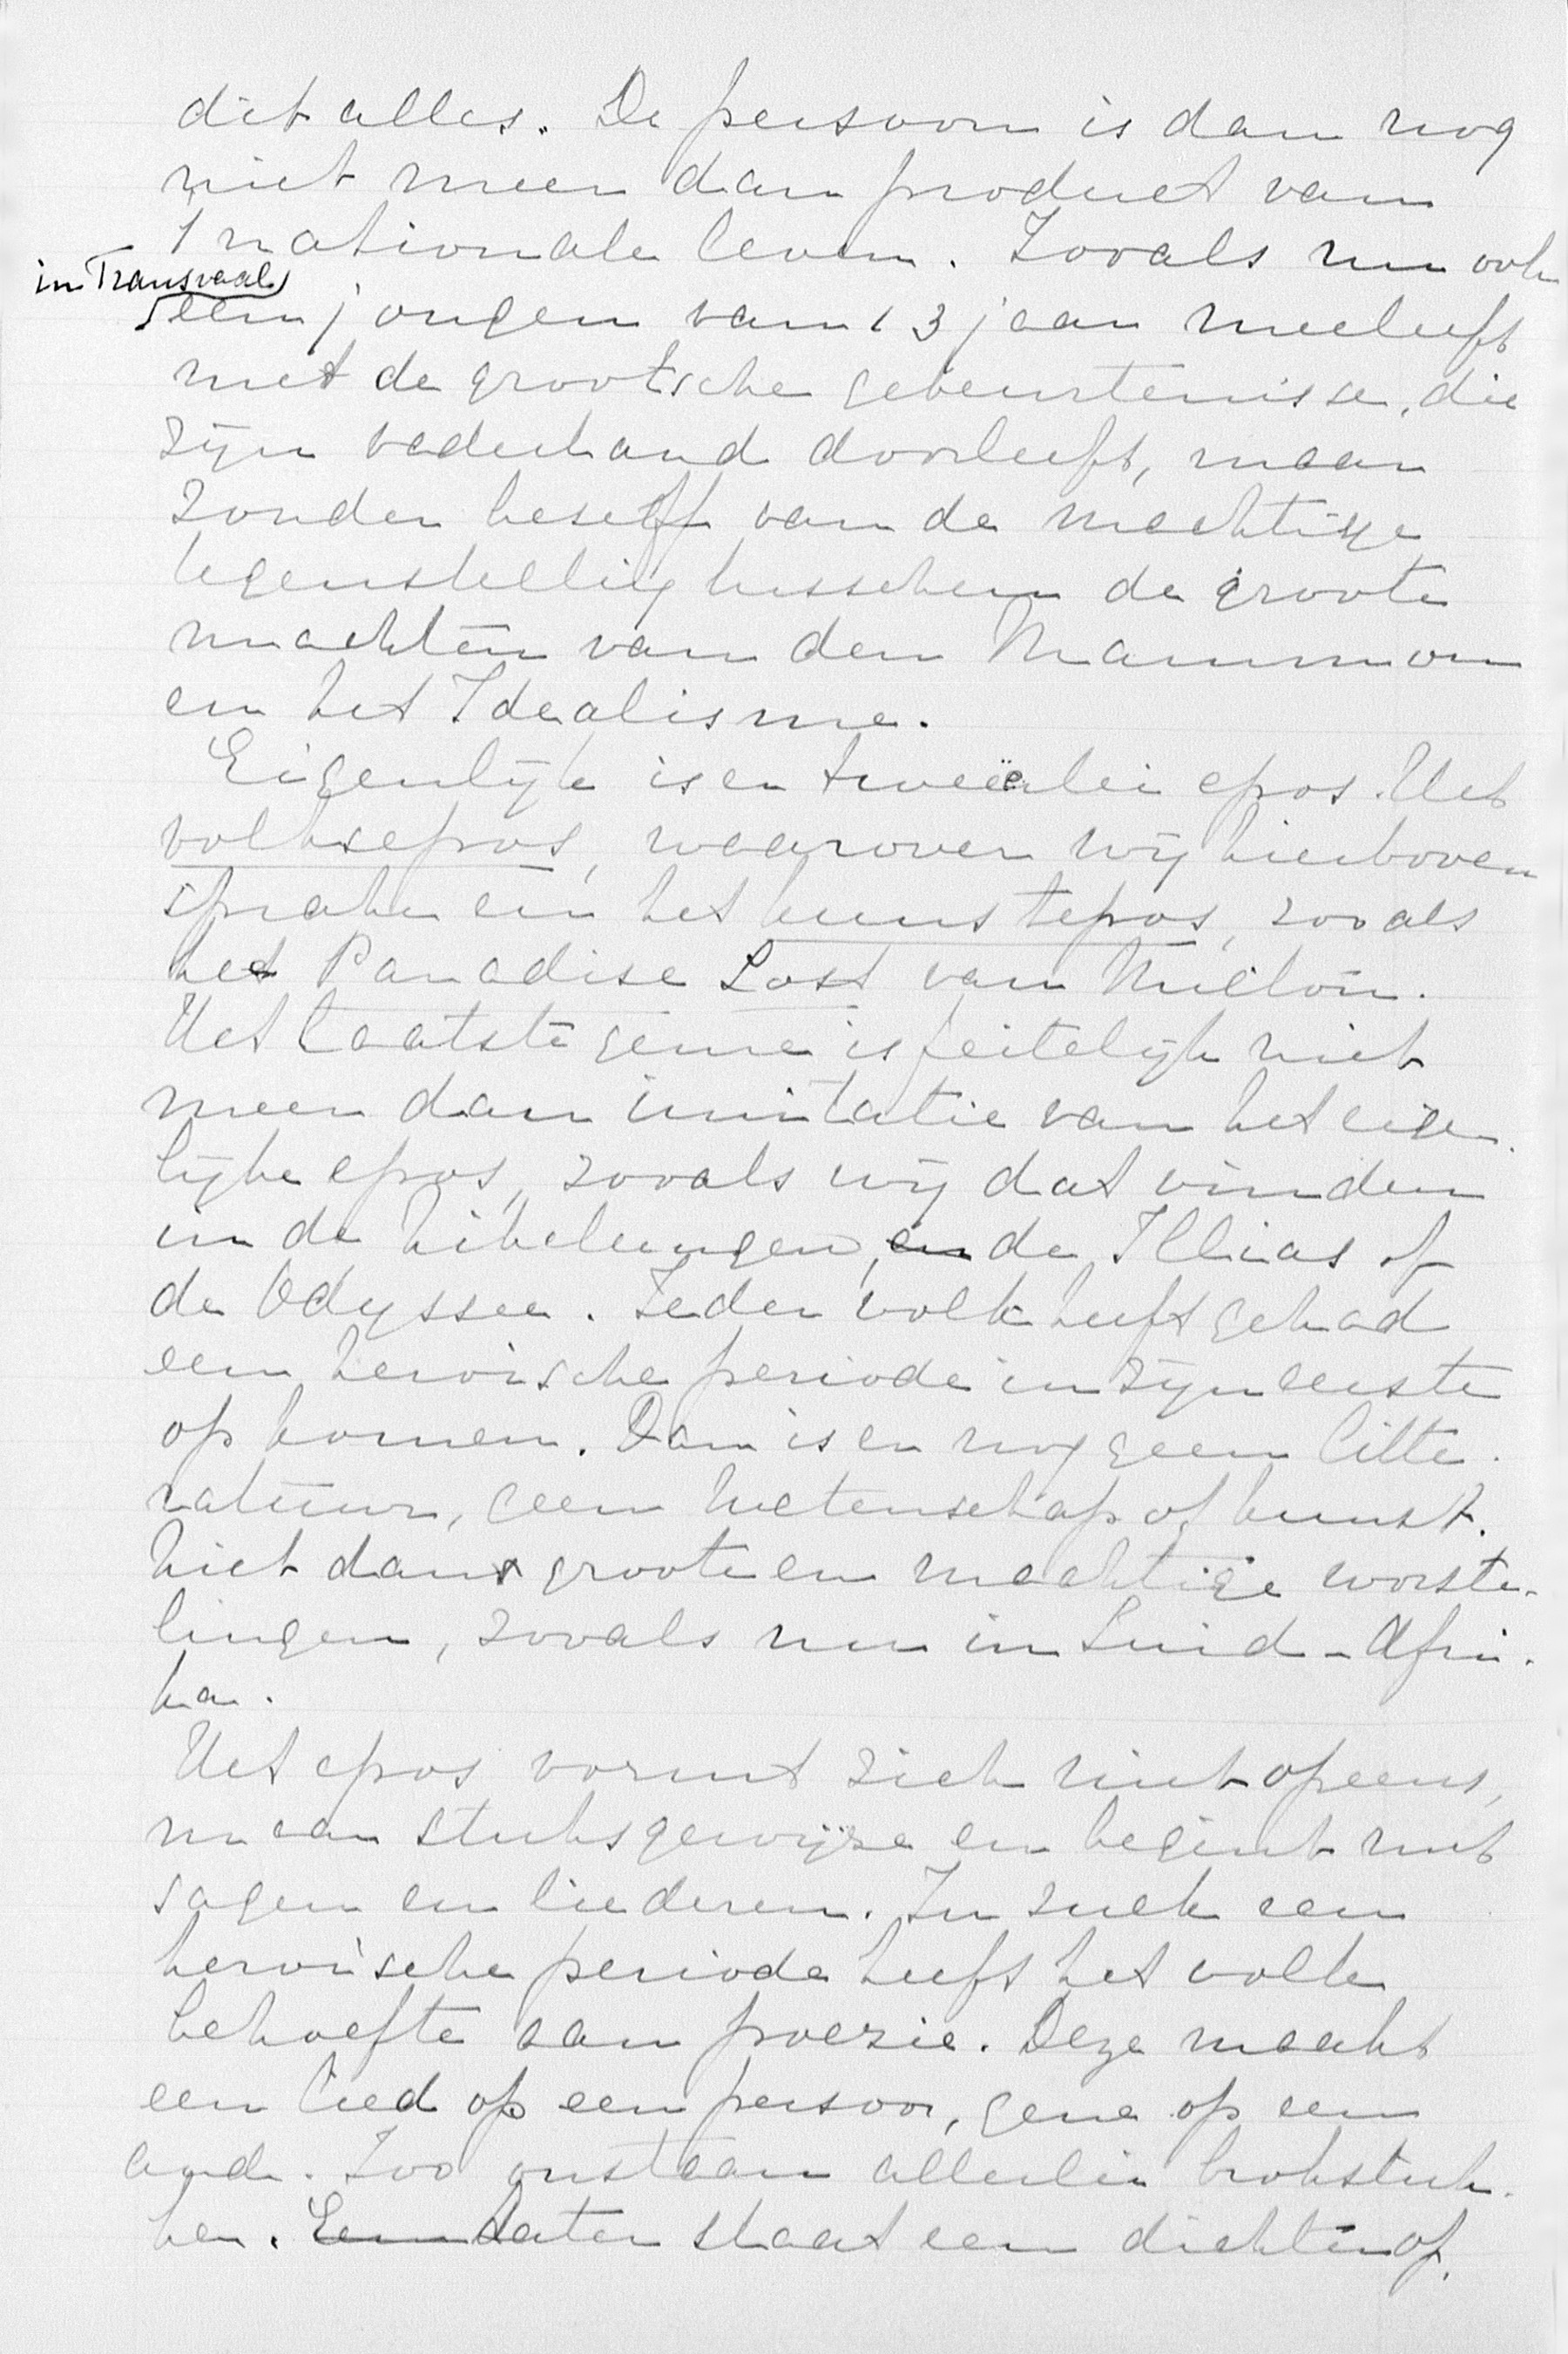 dit alles. De persoon is dan nog
niet meer dan product van
't nationale leven. Zooals nu ook
in Transvaal
een jongen van 13 jaar meeleeft
met de grootsche gebeurtenisse, die
zijn vaderland doorleeft, maar
zonder beseff van de machtige
tegenstellig tusschen de groote
machten van den Mammon
en het Idealisme.
Eigenlijk is er tweeërlei epos. Het
volksepos, waarover wij hierboven
sprake en het kunstepos, zooals
het Paradise Lost van Milton.
Het laatste genre is feitelijk niet
meer dan imitatie van het eigen-
lijke epos, zooals wij dat vinden
in de Nibelungen, en de Illias of
de Odyssee. Ieder volk heeft gehad
een heroïsche periode in zijn eerste
opkomen. Dan is er nog geen litte-
ratuur, geen wetenschap of kunst.
Niet dan groote en machtige worste-
lingen, zooals nu in Zuid-Afri-
ka.
Het epos vormt zich niet opeens,
maar stuksgewijze en begint met
sagen en liederen. In zulk een
heroïsche periode heeft het volk
behoefte aan poezie. Deze maakt
een lied op een persoon, gene op een
ander. Zoo onstaan allerlei brokstuk-
ken. Een later staat een dichter op.